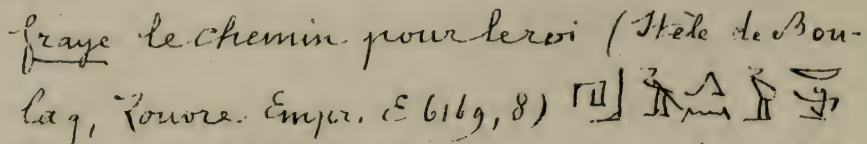 fraye le chemin pour le roi (Stèle de Bou-
laq, Louvre. Empr. E 6169, 8)